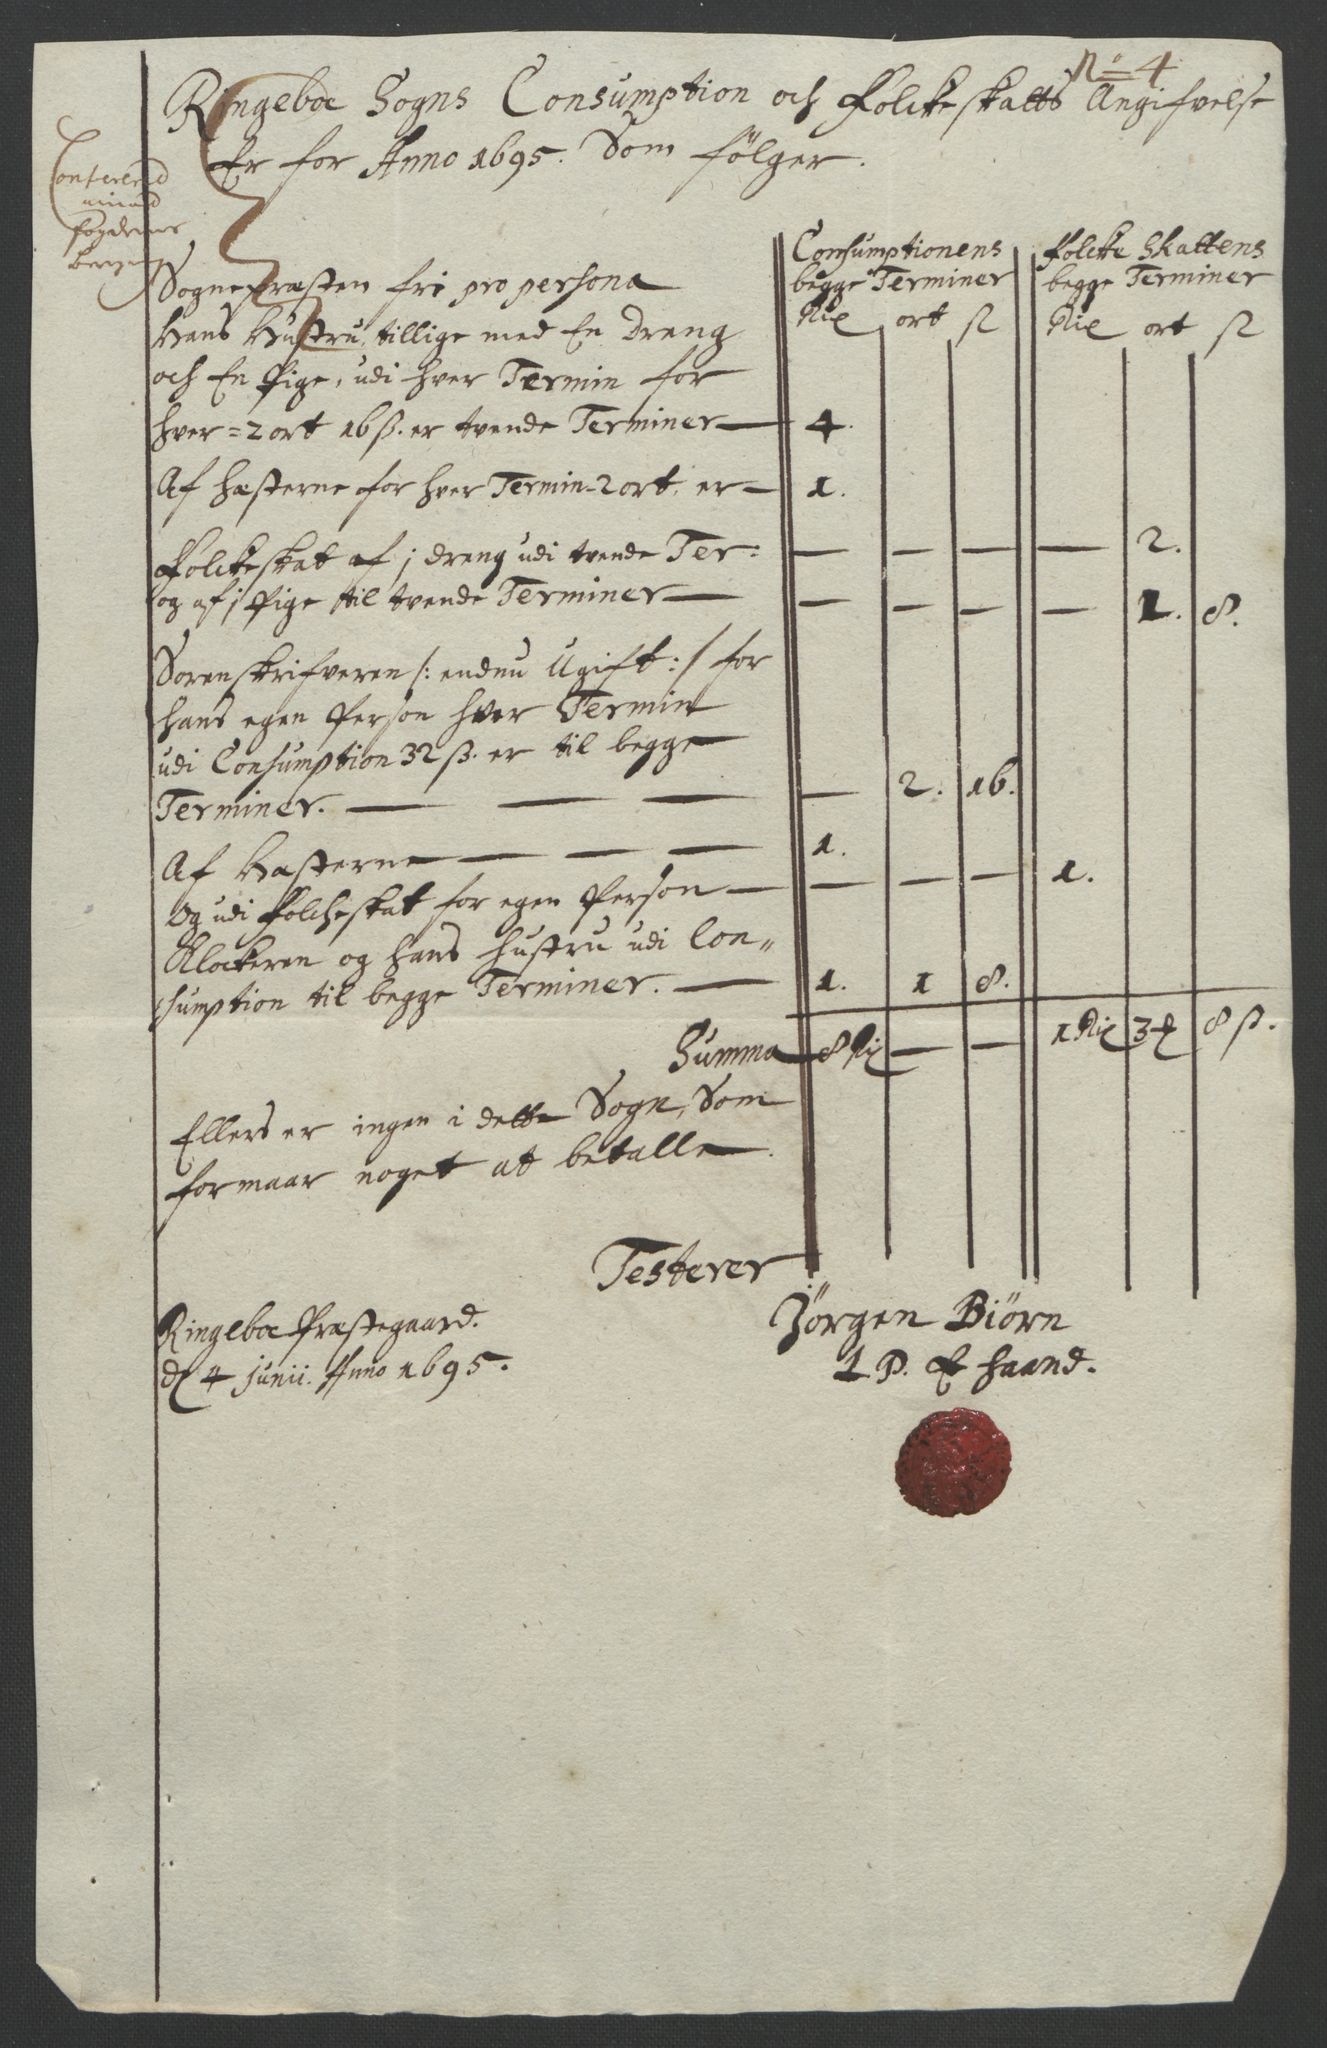 No 4
Ringeboe Sogns Consumption och Folckeskatts Angifvelse
Er for Anno 1695. Som følger.
Confererid
fogderner
Consumptionens
begge Terminer
Rix ort ß
Folcke Skattens
begge Terminer
Rix ort ß
Sognepræsten fri pro persona
Hans Hustru tillige med En Dreng
och En Pige, udi hver Termin for
hver = 2 ort 16 ß. er tvende Terminer — 4.
Af hæsterne for hver Termin - 2 ort, er — 1.
Folckeskat af j dreng udi tvende Ter: — — — — 2.
og af j Pige til tvende Terminer — — — — — 1. 8.
Sorenskrifveren /: endnu Ugift :/ for
hans egen Person hver Termin
udi Consumption 32 ß. er til begge
Terminer. — — — — 2. 16.
Af Hæsterne — — — 1.
Og udi Folckeskat for egen Person — — — — 1.
Klockeren og hans hustru udi Con„
sumption til begge Terminer. — 1. 1 8.
Summa 8 Rix — — 1 Rix 3 ß 8 ß.
Ellers er ingen i dette Sogn, Som
formaar noget at betalle.
Testerer
Ringeboe Præstegaard.
d 4 Junii. Anno 1695.
Jörgen Biörn
L. P. E haand.